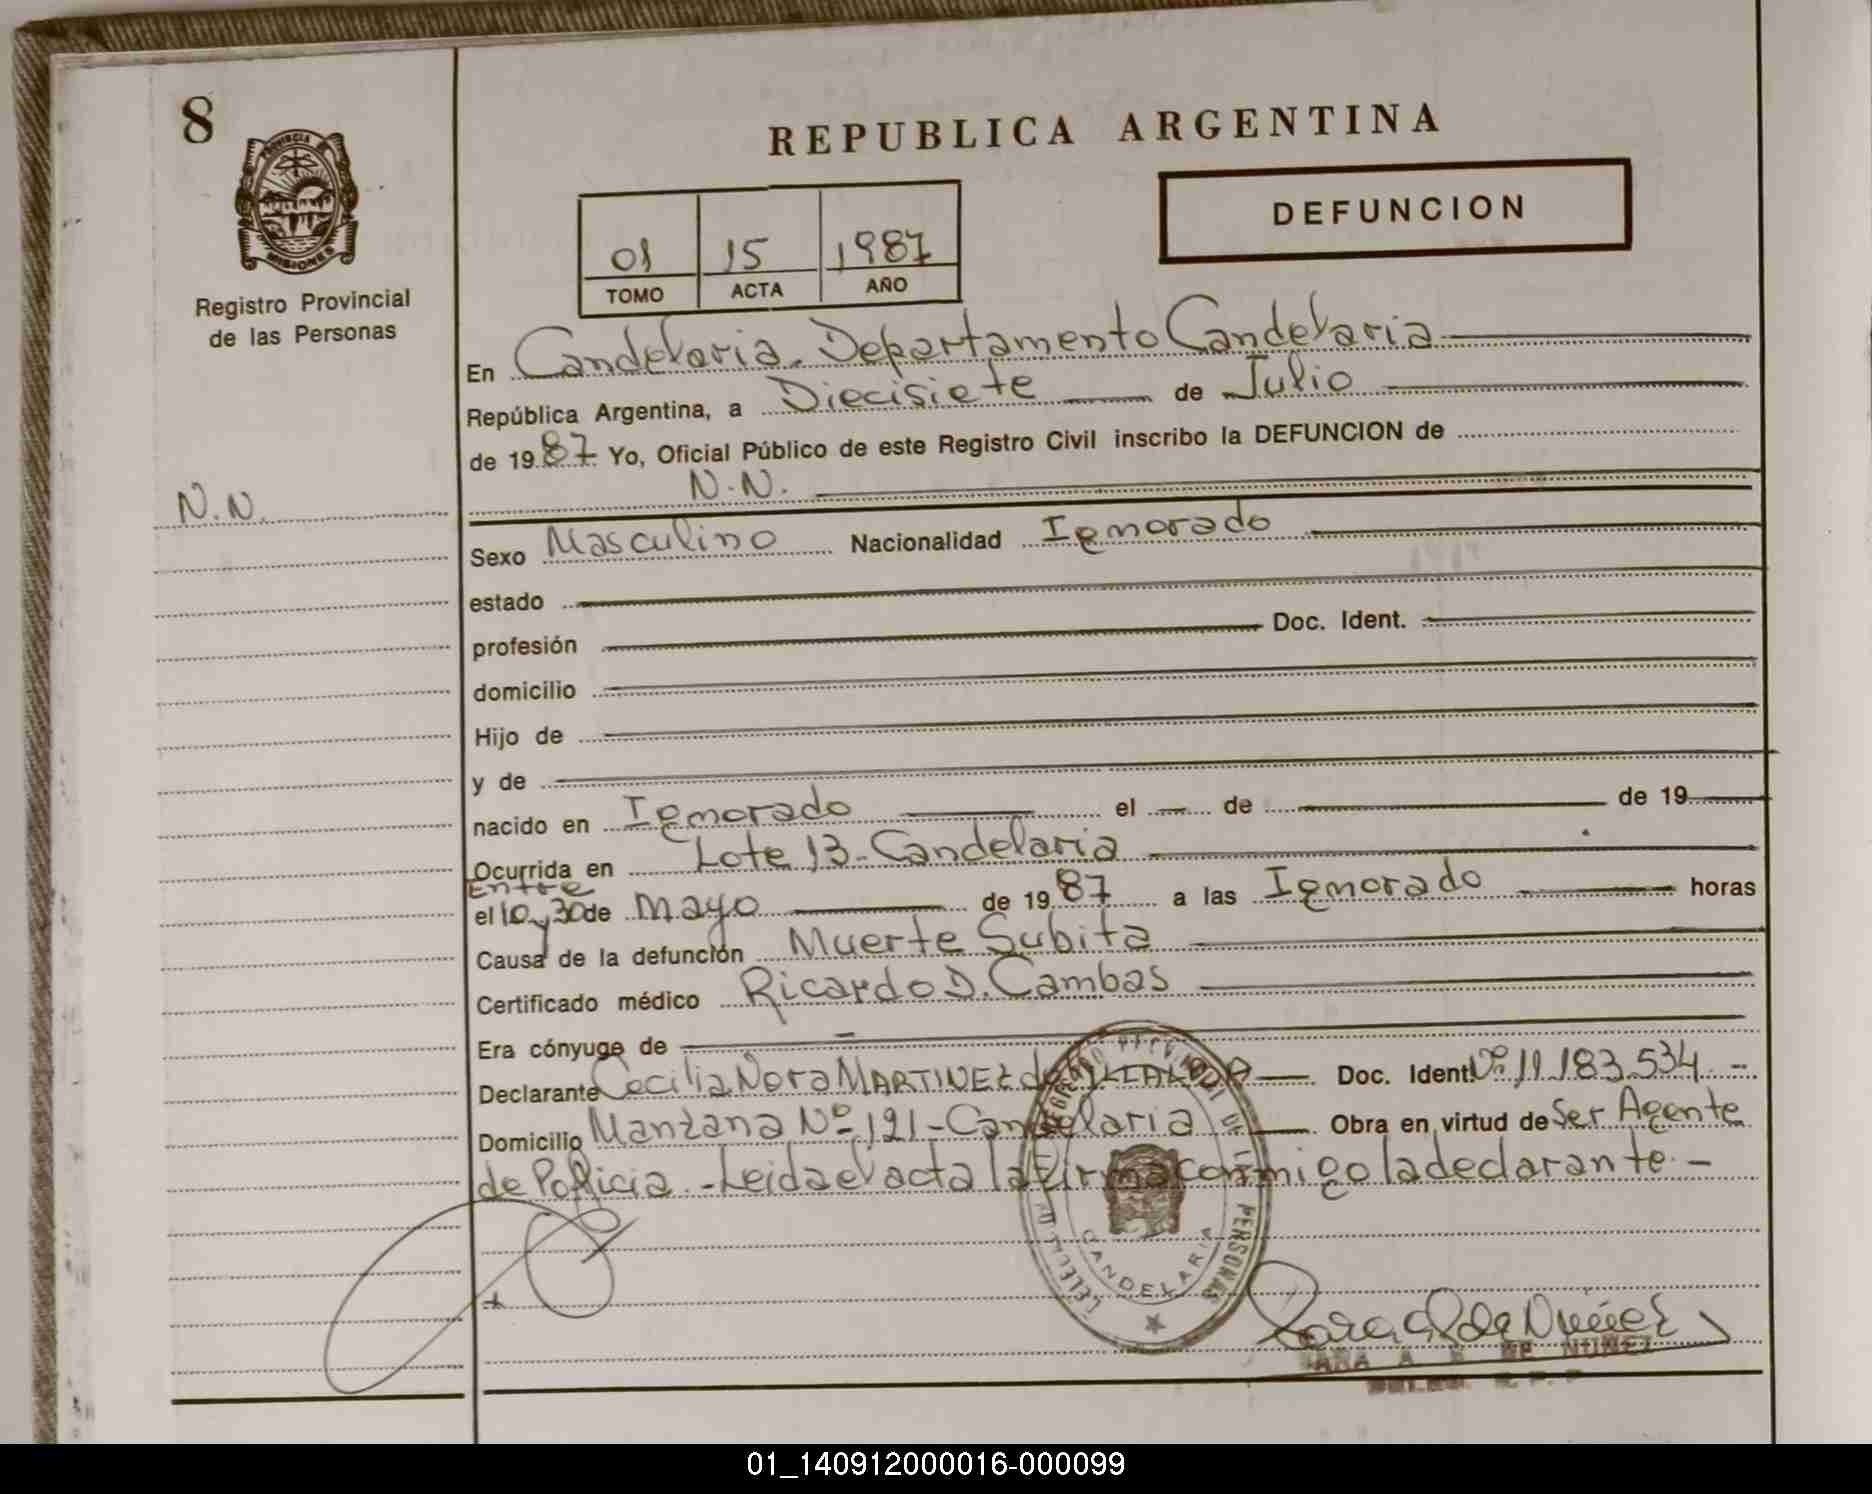 8
PROVINCIA
MISIONES
Registro Provincial
de las Personas
N.N.
REPUBLICA ARGENTINA
01 15 1987
TOMO ACTA AÑO
DEFUNCION
En Candelaria. Departamento Candelaria
República Argentina, a Diecisiete de Julio
de 1987. Yo, Oficial Público de este Registro Civil inscribo la DEFUNCION de
N.N.
Sexo Masculino Nacionalidad Ignorado
estado
profesión Doc. Ident.
domicilio
Hijo de
y de
nacido en Ignorado el de de 19
Ocurrida en Lote 13-Candelaria
Entre
el 10 y 30 de Mayo de 1987 a las Ignorado horas
Causa de la defunción Muerte Subita
Certificado médico Ricardo D. Cambas
Era cónyuge de
Declarante Cecilia Nora MARTINEZ de Doc. Ident. Nº 11.183.534 -
Domicilio Manzana Nº 121-Candelaria Obra en virtud de Ser Agente
de Policia.-Leida el acta la firma conmigo la declarante.-
CANDELARIA
PERSONAS
Sara A de Núñez
SARA A. DE NUÑEZ
01_140912000016-000099